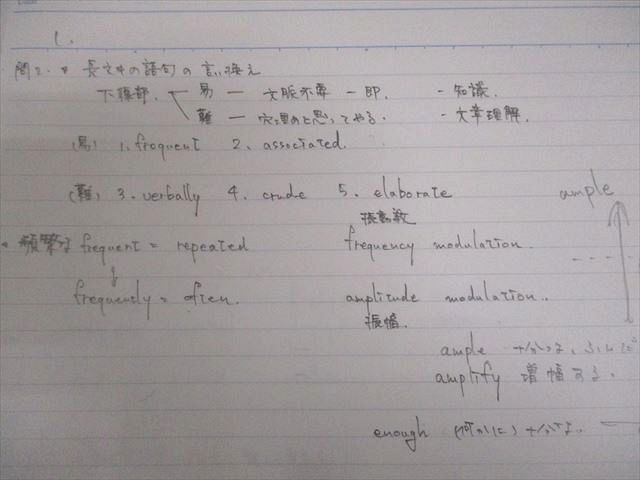 1.
問2. 長文中の語句の言い換え
下線部. 易 — 文脈不要 — 即. - 知識.
難 — 穴埋めと思ってやる. - 文章理解.
(易) 1. frequent 2. associated.
(難) 3. verbally 4. crude 5. elaborate
ample
振動数
頻繁な frequent = repeated frequency modulation.
frequently = often. amplitude modulation..
振幅.
ample 十分な、
amplify 増幅する.
enough (何かに) 十分な.